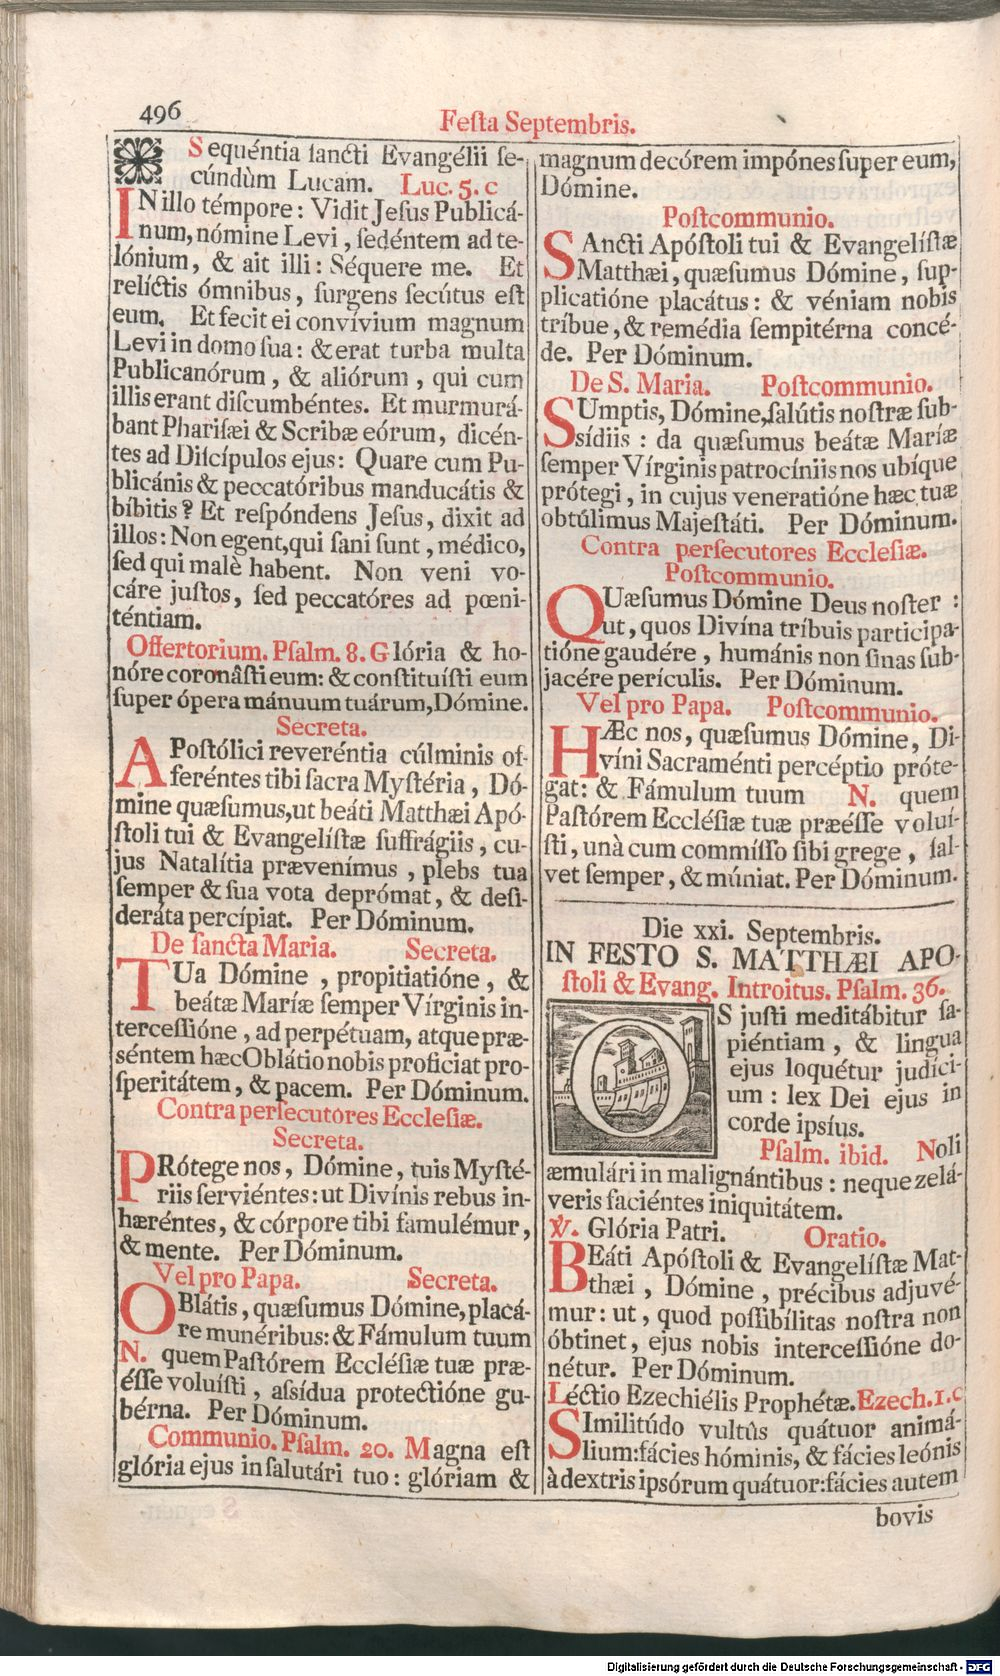 496
Festa Septembris.
Sequéntia sancti Evangélii se-
cúndùm Lucam. Luc. 5. c
IN illo témpore: Vidit Jesus Publicá-
num, nómine Levi, sedéntem ad te-
lónium, & ait illi: Séquere me. Et
relíctis ómnibus, surgens secútus est
eum. Et fecit ei convívium magnum
Levi in domo sua: & erat turba multa
Publicanórum, & aliórum, qui cum
illis erant discumbéntes. Et murmurá-
bant Pharisæi & Scribæ eórum, dicén-
tes ad Discípulos ejus: Quare cum Pu-
blicánis & peccatóribus manducátis &
bíbitis? Et respóndens Jesus, dixit ad
illos: Non egent, qui sani sunt, médico,
sed qui malè habent. Non veni vo-
cáre justos, sed peccatóres ad pœni-
téntiam.
Offertorium. Psalm. 8. Glória & ho-
nóre coronâsti eum: & constituísti eum
super ópera mánuum tuárum, Dómine.
Secreta.
APostólici reveréntia cúlminis of-
feréntes tibi sacra Mystéria, Dó-
mine quæsumus, ut beáti Matthæi Apó-
stoli tui & Evangelístæ suffrágiis, cu-
jus Natalítia prævenímus, plebs tua
semper & sua vota deprómat, & desi-
deráta percípiat. Per Dóminum.
De sancta Maria. Secreta.
TUa Dómine, propitiatióne, &
beátæ Maríæ semper Vírginis in-
tercessióne, ad perpétuam, atque præ-
séntem hæc Oblátio nobis proficiat pro-
speritátem, & pacem. Per Dóminum.
Contra persecutores Ecclesiæ.
Secreta.
PRótege nos, Dómine, tuis Mysté-
riis serviéntes: ut Divínis rebus in-
hæréntes, & córpore tibi famulémur,
& mente. Per Dóminum.
Vel pro Papa. Secreta.
OBlátis, quæsumus Dómine, placá-
re munéribus: & Fámulum tuum
N. quem Pastórem Ecclésiæ tuæ præ-
ésse voluísti, assídua protectióne gu-
bérna. Per Dóminum.
Communio. Psalm. 20. Magna est
glória ejus in salutári tuo: glóriam &
magnum decórem impónes super eum,
Dómine.
Postcommunio.
SAncti Apóstoli tui & Evangelístæ
Matthæi, quæsumus Dómine, sup-
plicatióne placátus: & véniam nobis
tríbue, & remédia sempitérna concé-
de. Per Dóminum.
De S. Maria. Postcommunio.
SUmptis, Dómine, salútis nostræ sub-
sídiis: da quæsumus beátæ Maríæ
semper Vírginis patrocíniis nos ubíque
prótegi, in cujus veneratióne hæc tuæ
obtúlimus Majestáti. Per Dóminum.
Contra persecutores Ecclesiæ.
Postcommunio.
QUæsumus Dómine Deus noster:
ut, quos Divína tríbuis participa-
tióne gaudére, humánis non sinas sub-
jacére perículis. Per Dóminum.
Vel pro Papa. Postcommunio.
HÆc nos, quæsumus Dómine, Di-
víni Sacraménti percéptio próte-
gat: & Fámulum tuum N. quem
Pastórem Ecclésiæ tuæ præésse voluí-
sti, unà cum commísso sibi grege, sal-
vet semper, & múniat. Per Dóminum.
Die xxi. Septembris.
IN FESTO S. MATTHÆI APO-
stoli & Evang. Introitus. Psalm. 36.
OS justi meditábitur sa-
piéntiam, & lingua
ejus loquétur judíci-
um: lex Dei ejus in
corde ipsíus.
Psalm. ibid. Noli
æmulári in malignántibus: neque zelá-
veris faciéntes iniquitátem.
℣. Glória Patri. Oratio.
BEáti Apóstoli & Evangelístæ Mat-
thæi, Dómine, précibus adjuvé-
mur: ut, quod possibílitas nostra non
óbtinet, ejus nobis intercessióne do-
nétur. Per Dóminum.
Léctio Ezechiélis Prophétæ. Ezech. 1. c
SImilitúdo vultûs quátuor animá-
lium: fácies hóminis, & fácies leónis
à dextris ipsórum quátuor: fácies autem
bovis
Digitalisierung gefördert durch die Deutsche Forschungsgemeinschaft - DFG